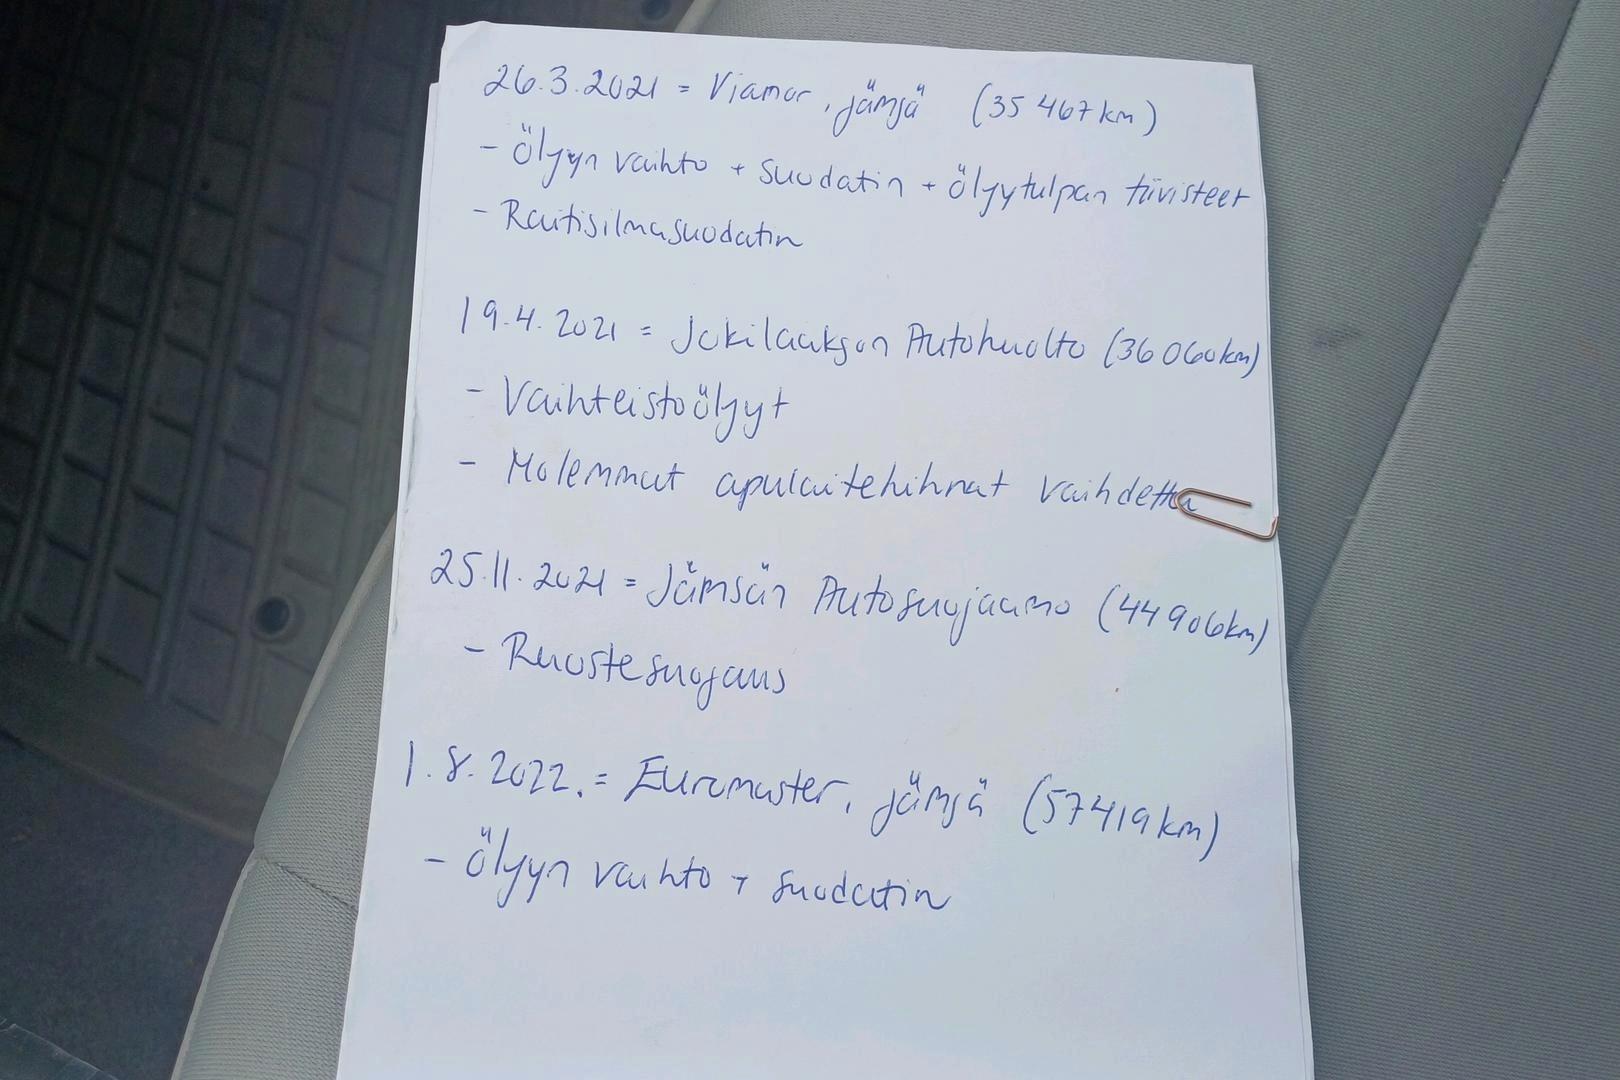 26.3.2021 = Viamor, Jämsä (35 467 km)
- Öljyn vaihto + suodatin + Öljytulpan tiivisteet
- Raitisilmasuodatin
19.4.2021 = Jokilaakson Autohuolto (36 060 km)
- Vaihteistoöljyt
- Molemmat apulaitehihnat vaihdettu
25.11.2021 = Jämsän Autosuojaamo (44 906 km)
- Ruostesuojaus
1.8.2022. = Euromaster, Jämsä (57 419 km)
- Öljyn vaihto + suodatin